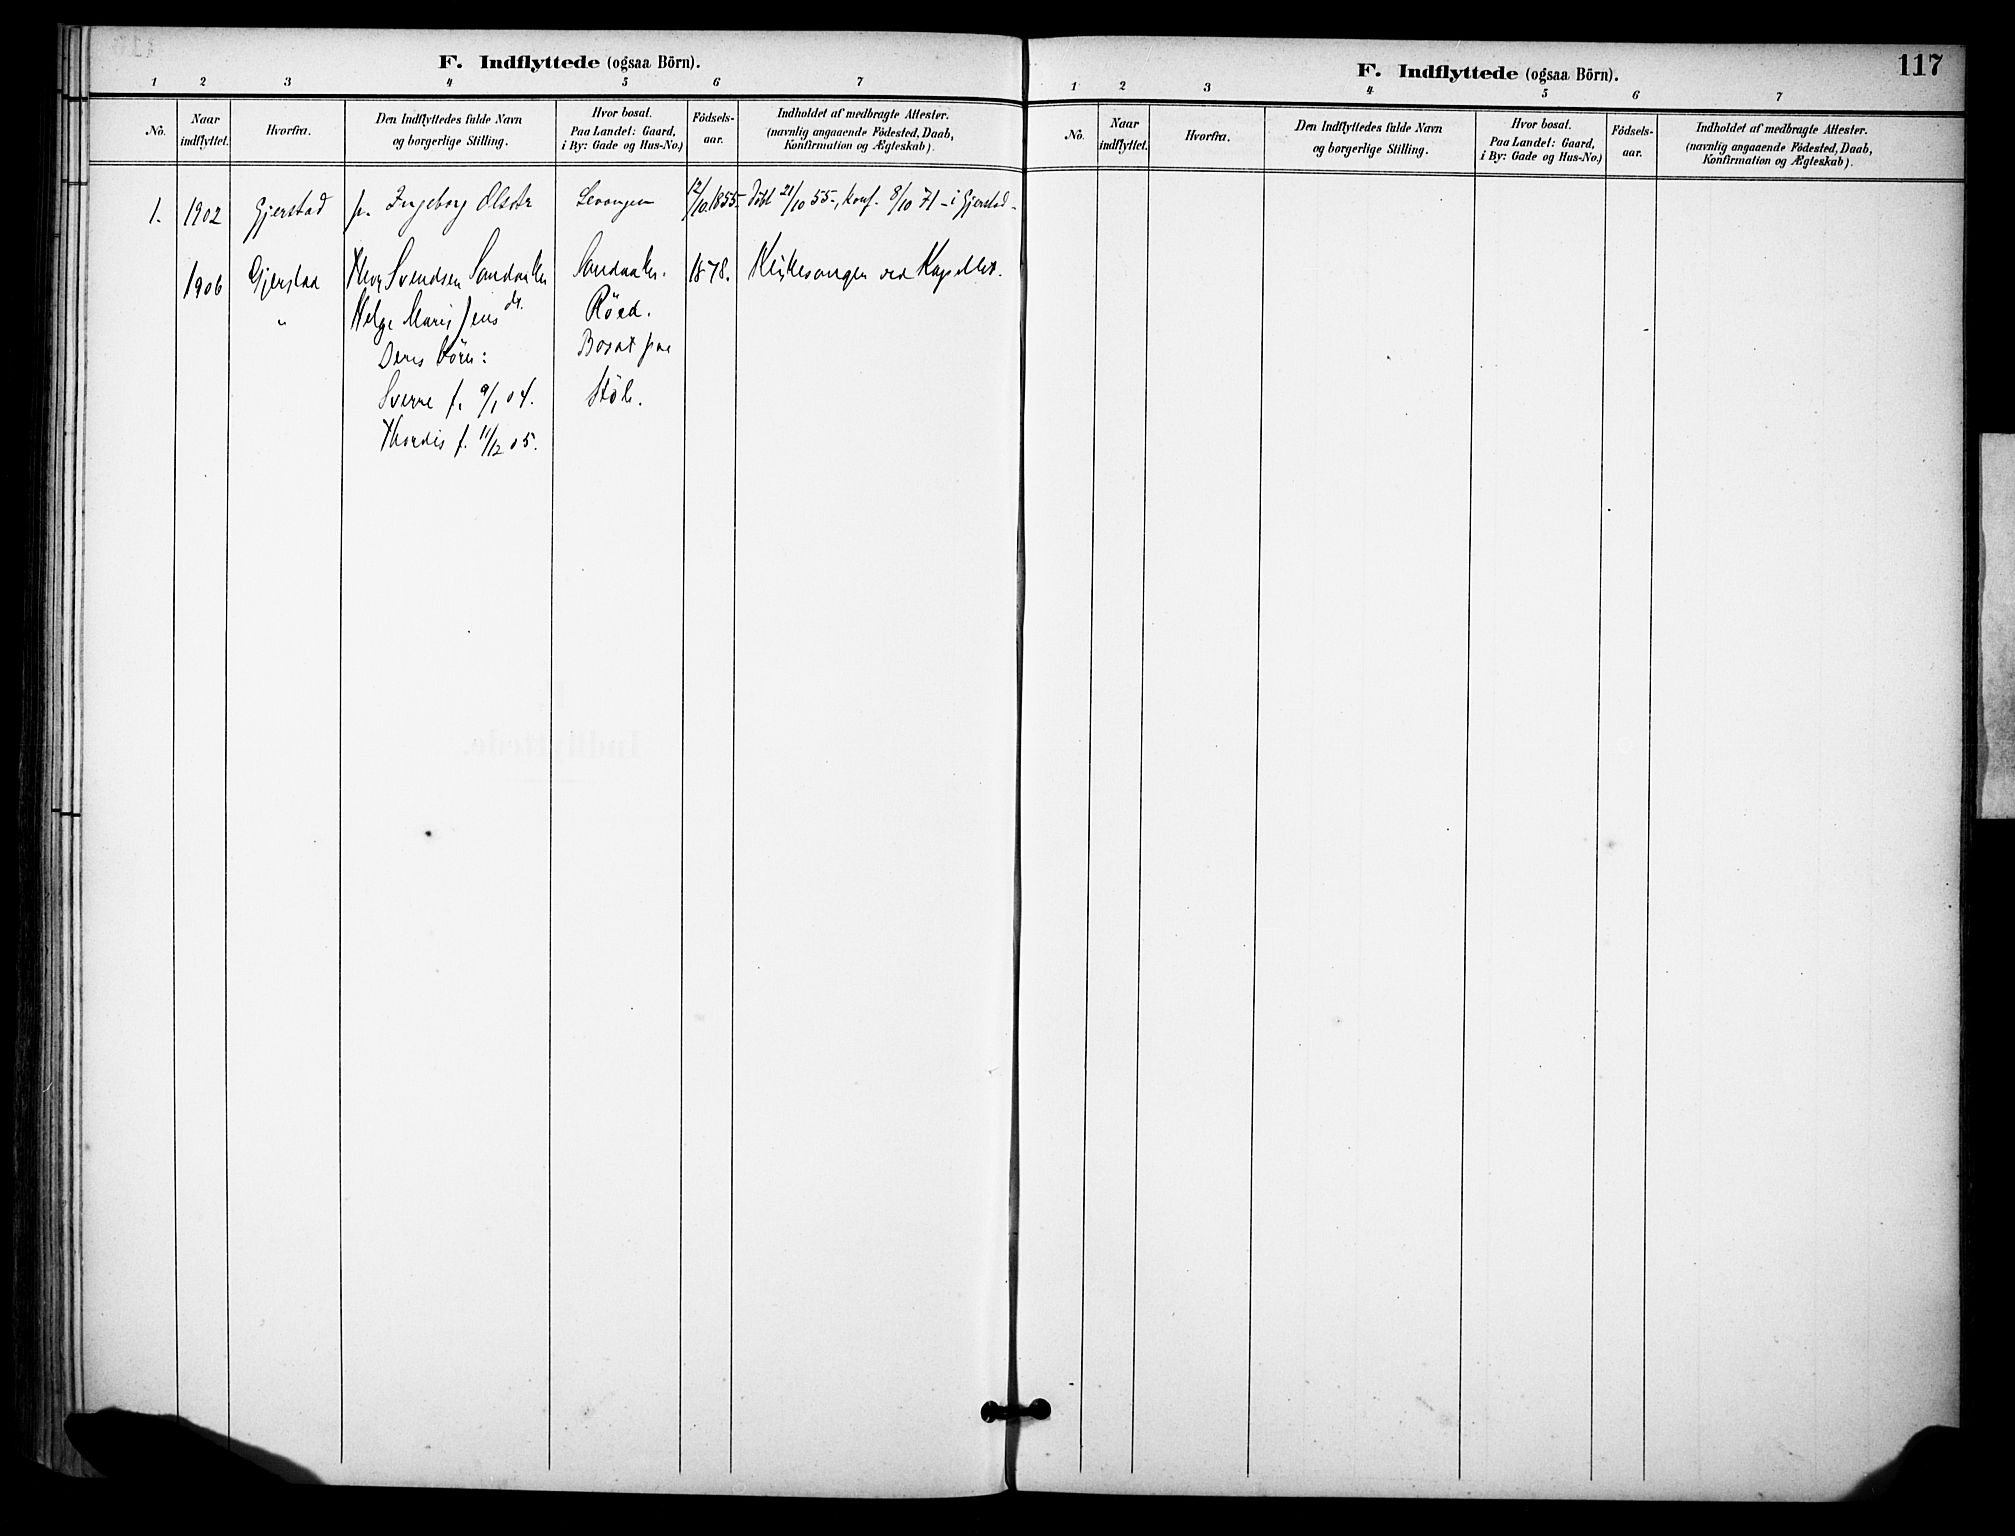 F. Indflyttede (ogsaa Börn).
1 2 3 4 5 6 7
No. Naar indflyttet. Hvorfra. Den Indflyttedes fulde Navn og borgerlige Stilling. Hvor bosat. Paa Landet: Gaard, i By: Gade og Hus-No.) Födsels-aar. Indholdet af medbragte Attester. (navnlig angaaende Födested, Daab, Konfirmation og Ægteskab).
1. 1902 Gjerstad p. Ingeborg Olsdtr 12/10 1855 Döbt 21/10 55, konf. 8/10 71 i Gjerstad
1906 Gjerstad Svendsen Sandaaker Sandaaker. 1878. Kirkesanger ved Kapellet.
" Helge Marie Jens dt. Röed.
Deres börn: Bosat paa
Sverre f. 9/1 04. Stöle.
Thordis f. 11/12 05.
F. Indflyttede (ogsaa Börn).
117
1 2 3 4 5 6 7
No. Naar indflyttet. Hvorfra. Den Indflyttedes fulde Navn og borgerlige Stilling. Hvor bosat. Paa Landet: Gaard, i By: Gade og Hus-No.) Födsels-aar. Indholdet af medbragte Attester. (navnlig angaaende Födested, Daab, Konfirmation og Ægteskab).